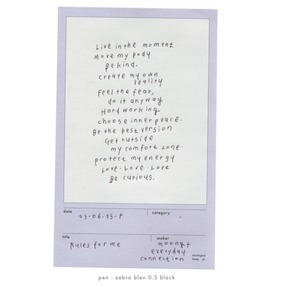 Live in the moment
Move my body
Be kind.
create my own
reality
Feel the fear,
do it anyway
Hard working
choose inner peace.
Be the best version
Get outside
my comfort zone.
protect my energy
Love. Love. Love
Be curious.
date
category
title
Rules for me
maker
everyday
connection
pen : zebra blen 0.5 black